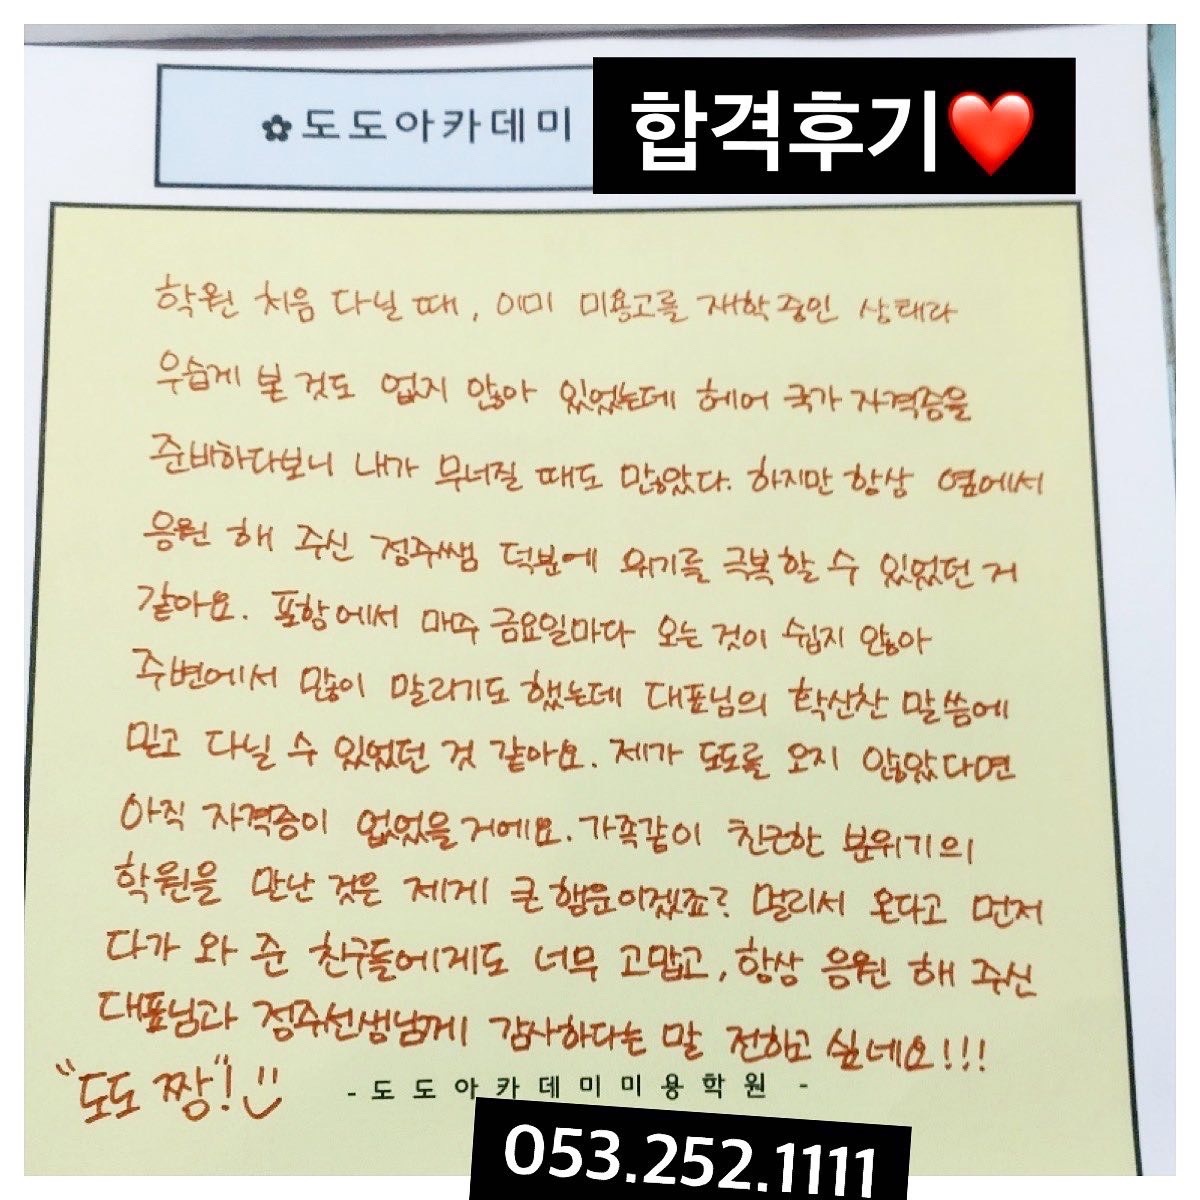 ✿도도아카데미
합격후기❤️
학원 처음 다닐 때, 이미 미용고를 재학중인 상태라
우습게 본 것도 없지 않아 있었는데 헤어 국가 자격증을
준비하다보니 내가 무너질 때도 많았다. 하지만 항상 옆에서
응원 해 주신 정주쌤 덕분에 위기를 극복할 수 있었던 거
같아요. 포항에서 매주 금요일마다 오는 것이 쉽지 않아
주변에서 많이 말리기도 했는데 대표님의 확신찬 말씀에
믿고 다닐 수 있었던 것 같아요. 제가 도도를 오지 않았다면
아직 자격증이 없었을거에요. 가족같이 친근한 분위기의
학원을 만난 것은 제게 큰 행운이겠죠? 멀리서 온다고 먼저
다가 와 준 친구들에게도 너무 고맙고, 항상 응원 해 주신
대표님과 정주선생님께 감사하다는 말 전하고 싶네요!!!
"도도 짱"!
- 도도아카데미미용학원 -
053.252.1111